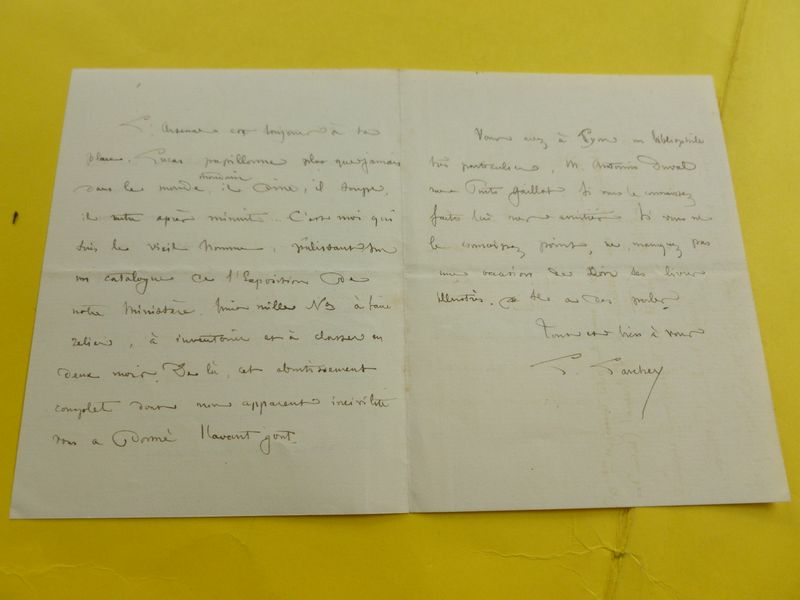 L'Arsenal est toujours à sa
place, Lucas papillonne plus que jamais
mondain
dans le monde, il dine, il soupe,
il rentre après minuit. C'est moi qui
suis le vieil homme, pâlissant sur
un catalogue de l'Exposition de
notre Ministère. mille Nos à faire
relier, à inventorier et à classer en
deux mois. De là, cet abrutissement
complet dont mon apparent incivilité
vous a donné l'avant gout.
Vous avez à Lyon un bibliophile
très particulier, M. Antonin Duval
Puits Gaillot Si vous le connaissez
faites lui mes amitiés. Si vous ne
le connaissez point, ne manquez pas
une occasion de voir ses livres
illustrés. Il a des perles
Tout et bien à vous